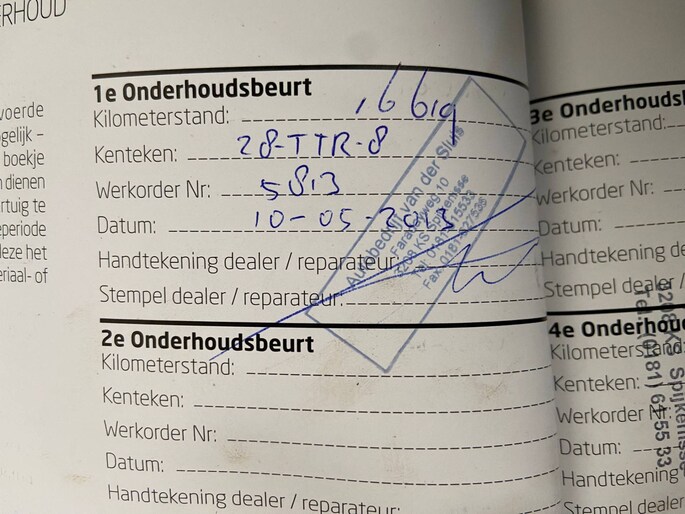 ERHOUD
voerde
gelijk –
boekje
n dienen
rtuig te
periode
deze het
eriaal- of
1e Onderhoudsbeurt
Kilometerstand:
Kenteken: 28-TTR-8
Werkorder Nr: 5813
Datum: 10-05-2013
Handtekening dealer / reparateur:
Stempel dealer / reparateur:
Autobedrijf van der Sluis
Faradayweg 10
3208 KS Spijkenisse
Tel: 0181-615533
Fax: 0181-627536
2e Onderhoudsbeurt
Kilometerstand:
Kenteken:
Werkorder Nr:
Datum:
Handtekening dealer / reparateur:
3e Onderhoudsb
Kilometerstand:
Kenteken:
Werkorder Nr:
Datum:
Handtekening de
Stempel dealer /
4e Onderhoud
Kilometerstand:
Kenteken:
Werkorder Nr:
Datum:
Handtekening
Stempel dealer
KS Spijkenisse
Tel. (0181) 64 55 33